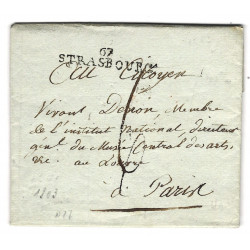 67
STRASBOURG
Au Citoyen
Vivant Denon Membre
de l'institut National directeur
genl. du Musée Central des arts
&c. au Louvre
à Paris
1803